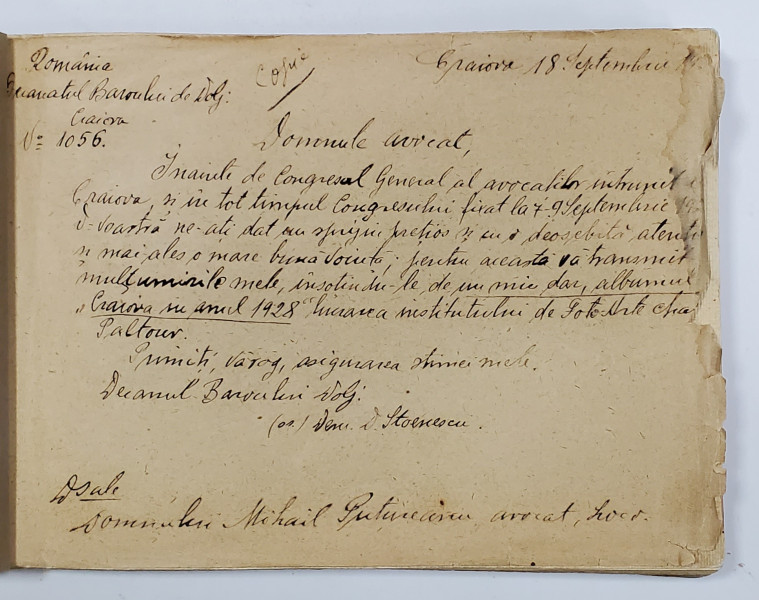 România
Decanatul Baroului de Dolj.
Craiova
No 1056.
Copie
Craiova 18 Septembrie 19
Domnule avocat,
Inainte de Congresul General al avocatilor intrunit
Craiova, si in tot timpul Congresului fixat la 7-9 Septembrie 19
D-Voastră ne-ati dat un sprijin pretios si cu o deosebită atenti
si mai ales o mare bună voință; pentru aceasta vă transmit
mulțumirile mele, insotindu-le de un mic dar, albumul
"Craiova in anul 1928" lucrarea institutului de Foto-Arte
Paltour.
Primiti, vă rog, asigurarea stimei mele.
Decanul Baroului Dolj.
(ss) Dem. D. Stoenescu.
Dsale
Domnului Mihail avocat, Loco.